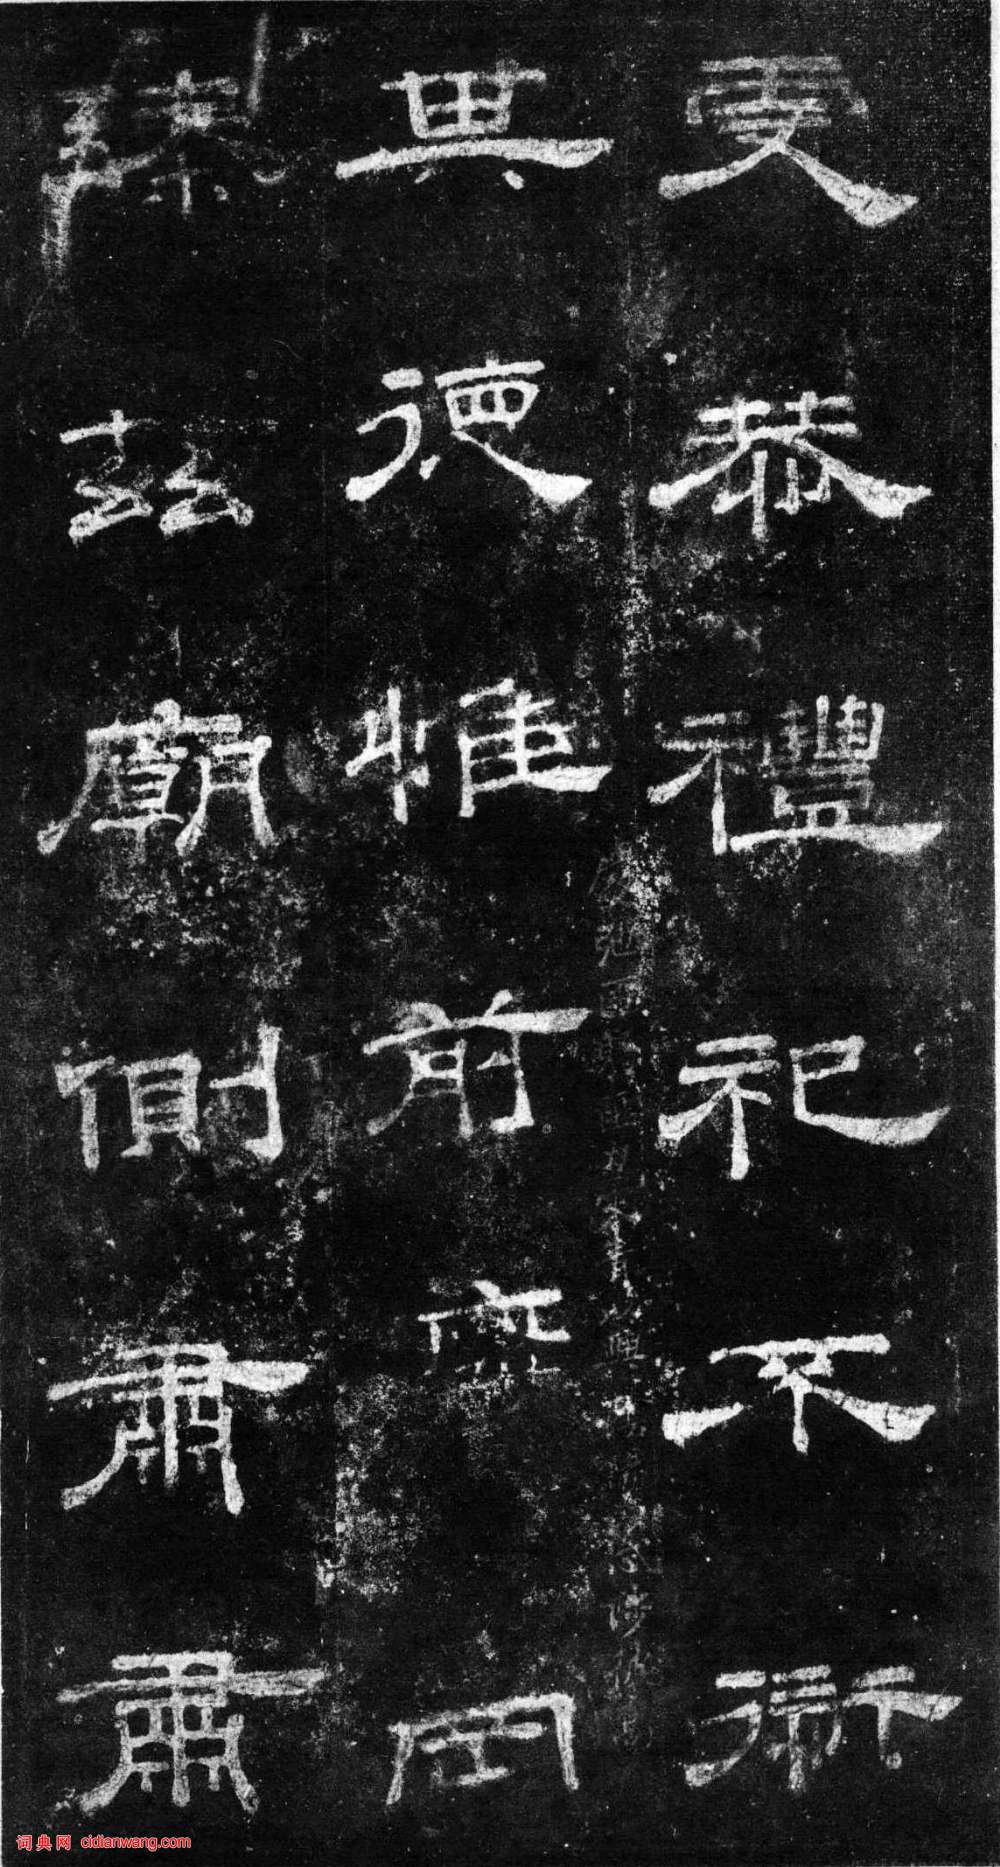 虔恭禮祀不衍
其德惟前罔
臻茲廟側肅肅
词典网 cidianwang.com